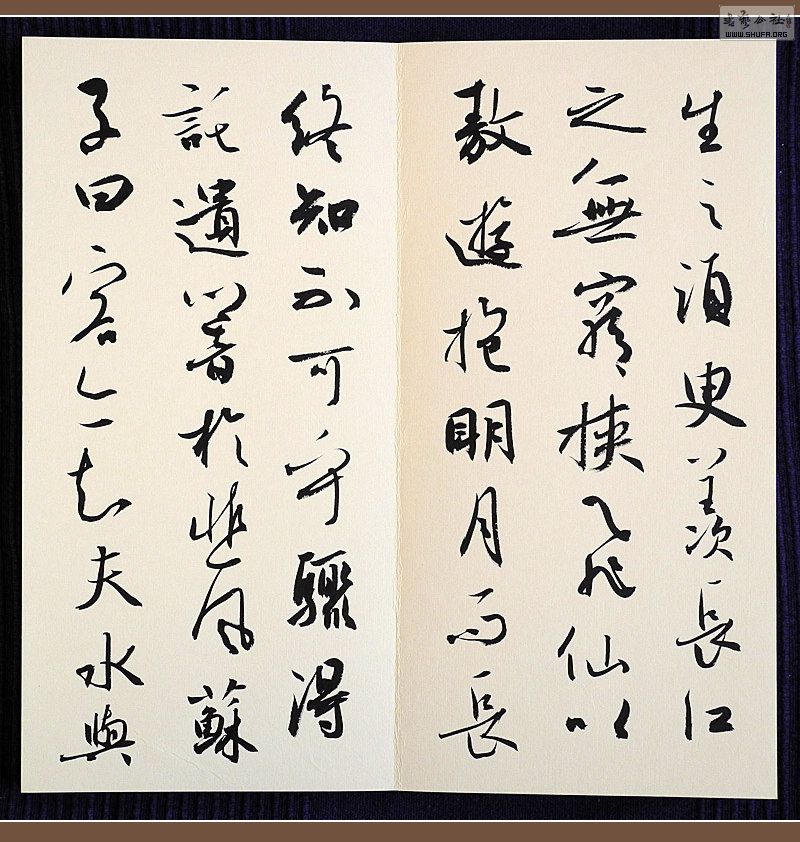 生之須臾羨長江
之無窮挾飛仙以
敖遊抱明月而長
終知不可乎驟得
託遺響於悲風蘇
子曰客亦知夫水與
書藝公社
WWW.SHUFA.ORG